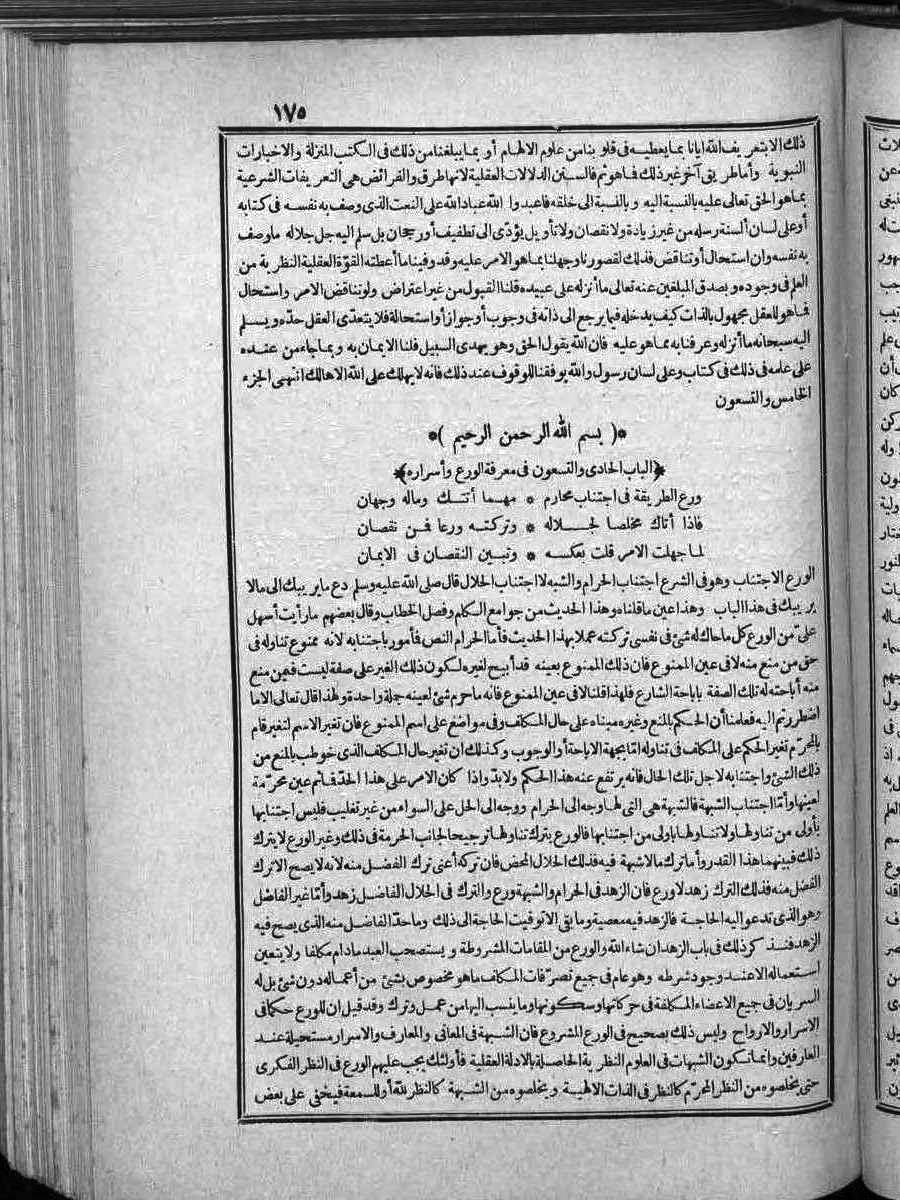 ١٧٥
ذلك الا بتعريف الله ايانا بما يعطيه فى قلوبنا من علوم الالهام أو بما يبلغنا من ذلك فى الكتب المنزلة والاخبارات
النبوية وأما طريق آخر غير ذلك فما هو ثم فالسنن الدلالات العقلية لانها طرق والفرائض هى التعريفات الشرعية
بما هو الحق تعالى عليه بالنسبة اليه وبالنسبة الى خلقه فاعبدوا الله عباد الله على النعت الذى وصف به نفسه فى كتابه
أو على لسان ألسنة رسله من غير زيادة ولا نقصان ولا تأويل يؤدّى الى تطفيف أو رجحان بل سلم اليه جل جلاله ما وصف
به نفسه وان استحال أو تناقض فذلك لقصورنا وجهلنا بما هو الامر عليه وقد وفينا ما أعطته القوّة العقلية النظرية من
العلم فى وجوده وبصدق المبلغين عنه تعالى ما أنزله على عبيده قلنا القبول من غير اعتراض ولو تناقض الامر واستحال
فما هو للعقل مجهول بالذات كيف يدخله فيما يرجع الى ذاته فى وجوب أو جواز أو استحالة فلا يتعدّى العقل حدّه ويسلم
اليه سبحانه ما أنزله وعرفنا به مما هو عليه فان الله يقول الحق وهو يهدى السبيل فلنا الايمان به وبما جاء من عنده
على علمه فى ذلك فى كتاب وعلى لسان رسول والله يوفقنا للوقوف عند ذلك فانه لا يهلك على الله الا هالك انتهى الجزء
الخامس والتسعون
*( بسم الله الرحمن الرحيم )*
*(الباب الحادى والتسعون فى معرفة الورع وأسراره)*
ورع الطريقة فى اجتناب محارم * مهما أتتك وماله وجهان
فاذا أتاك مخلصا لجلاله * وتركته ورعا فمن نقصان
لما جهلت الامر قلت بعكسه * وتبين النقصان فى الايمان
الورع الاجتناب وهو فى الشرع اجتناب الحرام والشبه لا اجتناب الحلال قال صلى الله عليه وسلم دع ما يريبك الى ما لا
يريبك فى هذا الباب وهذا عين ما قلناه وهذا الحديث من جوامع الكلم وفصل الخطاب وقال بعضهم ما رأيت أسهل
علىّ من الورع كل ما حاك له شئ فى نفسى تركته عملا بهذا الحديث فأما الحرام النص فأمور باجتنابه لانه ممنوع تناوله فى
حق من منع منه لا فى عين الممنوع فان ذلك الممنوع بعينه قد أبيح لغيره لكون ذلك الغير على صفة ليست فيمن منع
منه أباحته له تلك الصفة باباحة الشارع فلهذا قلنا لا فى عين الممنوع فانه ما حرم شئ لعينه جملة واحدة ولهذا قال تعالى الا ما
اضطررتم اليه فعلمنا أن الحكم بالمنع وغيره مبناه على حال المكلف وفى مواضع على اسم الممنوع فان تغير الاسم لتغير قام
بالمحرّم تغير الحكم على المكلف فى تناوله اما بجهة الاباحة أو الوجوب وكذلك ان تغير حال المكلف الذى خوطب بالمنع من
ذلك الشئ واجتنابه لاجل تلك الحال فانه يرتفع عنه هذا الحكم ولا بدّ واذا كان الامر على هذا الحدّ فما ثم عين محرّمة
لعينها وأمّا اجتناب الشبهة فالشبهة هى التى لها وجه الى الحرام ووجه الى الحل على السواء من غير تغليب فليس اجتنابها
بأولى من تناولها ولا تناولها باولى من اجتنابها فالورع يترك تناولها ترجيحا لجانب الحرمة فى ذلك وغير الورع لا يترك
ذلك فبينهما هذا القدر وأما ترك ما لا شبهة فيه فذلك الحلال المحض فان تركه أعنى ترك الفضل منه لانه لا يصح الا ترك
الفضل منه فذلك الترك زهد لا ورع فان الزهد فى الحرام والشبهة ورع والترك فى الحلال الفاضل زهد وأمّا غير الفاضل
وهو الذى تدعو اليه الحاجة فالزهد فيه معصية وما بقى الا توقيت الحاجة الى ذلك وما حدّ الفاضل منه الذى يصح فيه
الزهد فنذكر ذلك فى باب الزهد ان شاء الله والورع من المقامات المشروطة ويستصحب العبد ما دام مكلفا ولا يتعين
استعماله الا عند وجود شرطه وهو عام فى جميع تصرّفات المكلف ما هو مخصوص بشئ من أعماله دون شئ بل له
السريان فى جميع الاعضاء المكلفة فى حركاتها وسكونها وما ينسب اليها من عمل وترك وقد قيل ان للورع حكما فى
الاسرار والارواح وليس ذلك بصحيح فى الورع المشروع فان الشبهة فى المعانى والمعارف والاسرار مستحيلة عند
العارفين وانما تكون الشبهات فى العلوم النظرية الحاصلة بالادلة العقلية فأولئك يجب عليهم الورع فى النظر الفكرى
حتى يخلصوه من النظر المحرّم كالنظر فى الذات الالهية ويخلصوه من الشبهة كالنظر لله أو للسمعة فيخفى على بعض